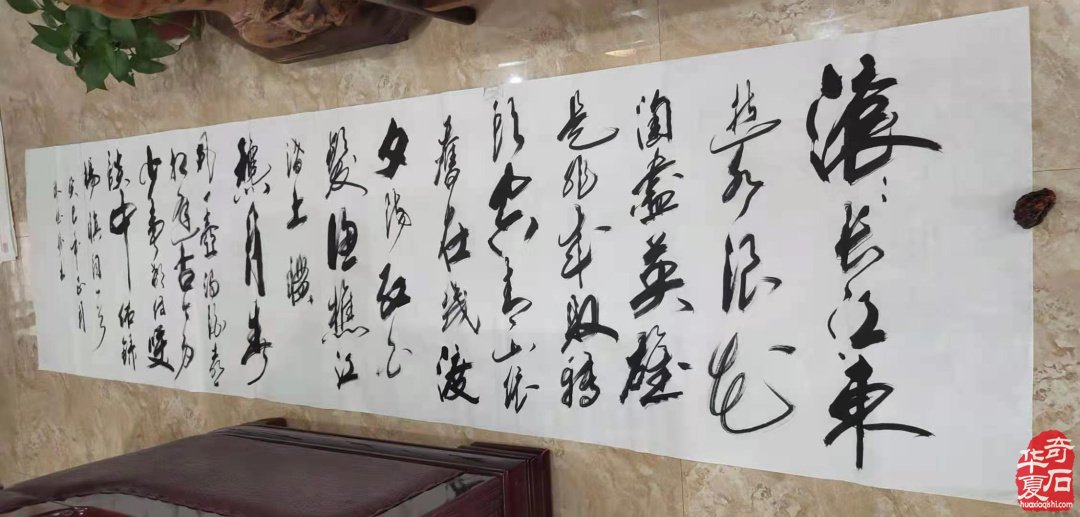 滚滚长江東
逝水浪花
淘盡英雄
是非成败转
头空青山依
舊在几渡
夕陽红白
髮渔樵江
渚上惯
月春
风一壶浊酒喜
相逢古今多
少事都付笑
谈中
杨慎词一首
年正月
华夏奇石
huaxiaqishi.com